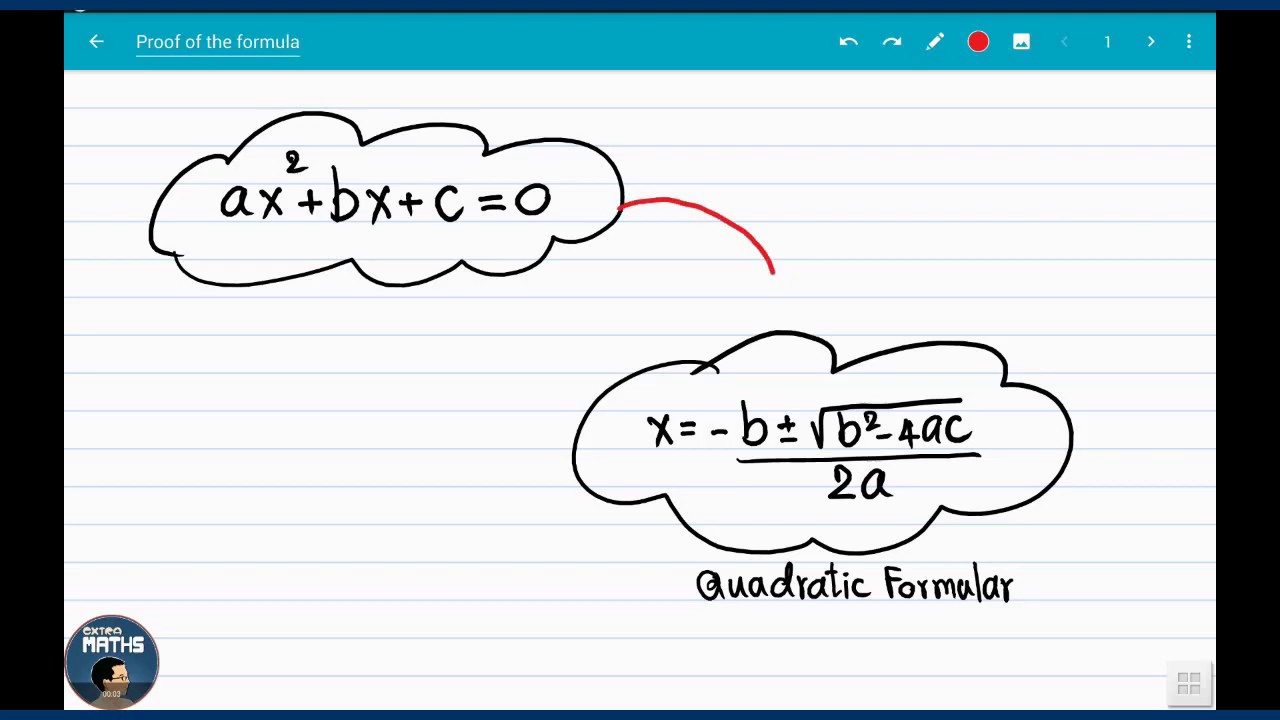 Proof of the formula
1
ax²+bx+c=0
x = -b ± √b²-4ac
2a
Quadratic Formular
EXTRA
MATHS
00:03